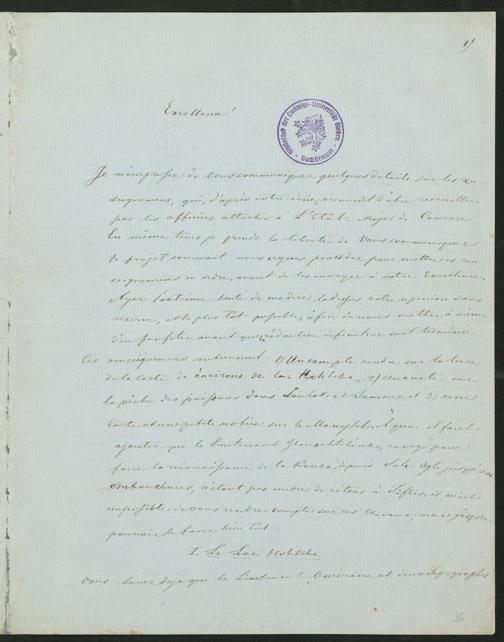 1)
Excellence!
Bibliothek der Ludwigs-Universität Gießen
Nachlässe
Je m'empresse de vous communiquer quelques details sur les ren-
seignemens, qui, d'après votre , viennent d'être recueillis
par les officiers attachés à l'Etat Major du Caucase.
En même tems je prends la liberté de vous communiquer
le projet comment nous croyons procéder pour mettre ces ren-
seignemens en ordre, avant de les envoyer à votre Excellence.
Ayez l'extrême bonté de me dire là dessus votre opinion sans
réserve, et le plus tôt possible, afin de nous mettre à même
d'en profiter avant que la rédaction définitive soit terminée
Ces renseignemens contiennent 1) Un compte rendu sur la levée
de la carte des environs du lac Gohtcha, 2) Une note sur
la pêche des poissons dans et et 3) une
carte et une petite notice sur le Manytch. À quoi il faut
ajouter, que le Lieutenant , envoyé pour
faire la reconnaissance de la Kouma depuis jusqu'à ses
embouchures, n'étant pas encore de retour à Tiflis, il m'est
impossible de vous rendre compte sur ses travaux, mais j'espère
pouvoir le faire bientôt
I. Le Lac Gohtcha
Vous savez deja que le Lieutenant et deux topographes